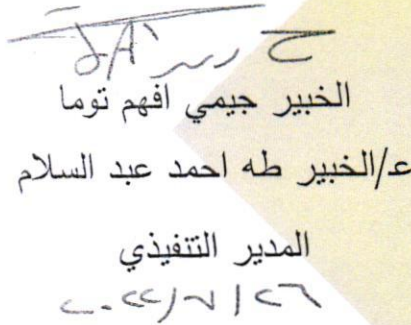 الخبير جيمي افهم توما
عـ/الخبير طه احمد عبد السلام
المدير التنفيذي
٢٠٢٢/٧/٢٦